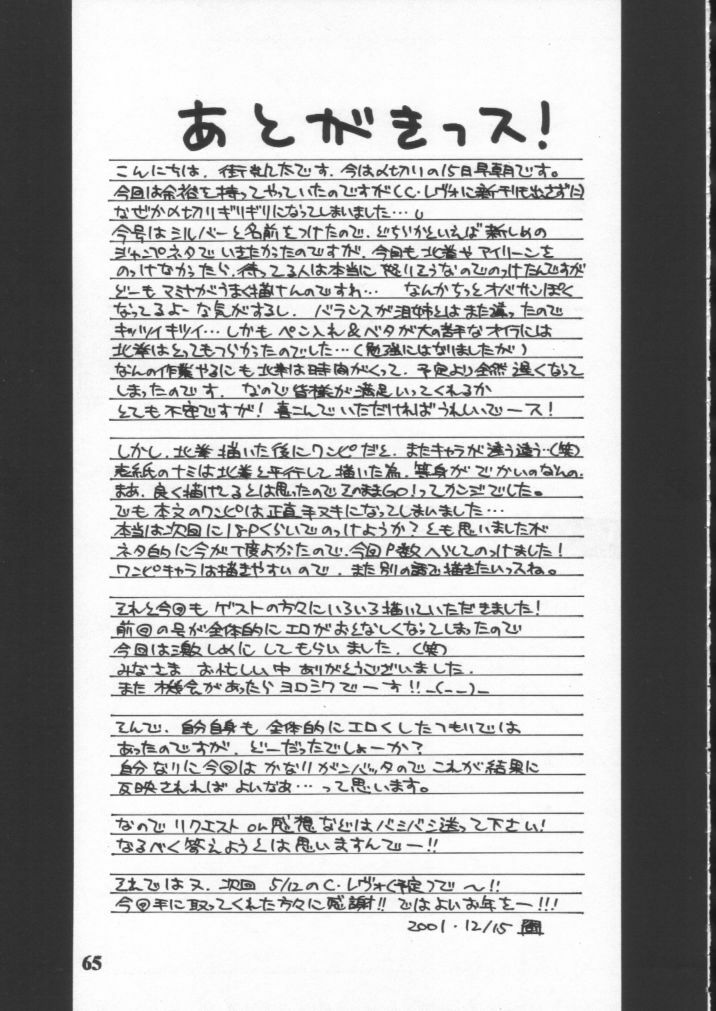 あとがきっス!
こんにちは、街 九太です。今は〆切りの15日早朝です。
今回は余裕を持ってやっていたのですが(C・レヴォに新刊出さずに)
なぜか〆切りギリギリになってしまいました…
今号はミルバーと名前をつけたので、どちらかといえば新しめの
ジャンプネタでいきたかったのですが、今回も北拳やアイリーンを
のっけなかったら、待ってる人は本当に怒りそうなのでのっけたんですが
どーもマミヤがうまく描けんのですわ… なんかちっとオバサンぽく
なってるよーな気がするし、バランスが泪姉とはまた違ったので
キッツイキツイ…しかもペン入れ&ベタが大の苦手なオイラには
北拳はとってもつらかったのでした…(勉強にはなりましたが)
なんの作業やるにも北拳は時間がくって、予定より全然遅くなって
しまったのです。なので皆様が満足いってくれるか
とても不安ですが!喜こんでいただければうれしいでース!
しかし、北拳描いた後にワンピだと、またキャラが違う違う…(笑)
表紙のナミは北拳と平行して描いた為、等身がでかいのなんの。
まあ、良く描けてるとは思ったのでそのままGO!ってカンジでした。
でも本文のワンピは正直手ヌキになってしまいました…
本当は次回に18Pくらいでのっけようか?とも思いましたが
ネタ的に今が丁度よかったので、今回P数へらしてのっけました!
ワンピキャラは描きやすいので、また別の話で描きたいっスね。
それと今回も ゲストの方々にいろいろ描いていただきました!
前回の号が全体的にエロがおとなしくなってしまったので
今回は激しめにしてもらいました。(笑)
みなさま お忙しい中ありがとうございました。
また機会があったらヨロシクでーす!!_(_ _)_
そんで、自分自身も全体的にエロくしたつもりでは
あったのですが、どーだったでしょーか?
自分なりに今回はかなりがンバッタのでこれが結果に
反映されればよいなあ…って思います。
なのでリクエスト or 感想などはバシバシ送って下さい!
なるべく答えようとは思いますんでー!!
それではヌ、次回 5/12のC・レヴォ(予定)で〜!!
今回手に取ってくれた方々に感謝!!ではよいお年をー!!!
2001・12/15
65